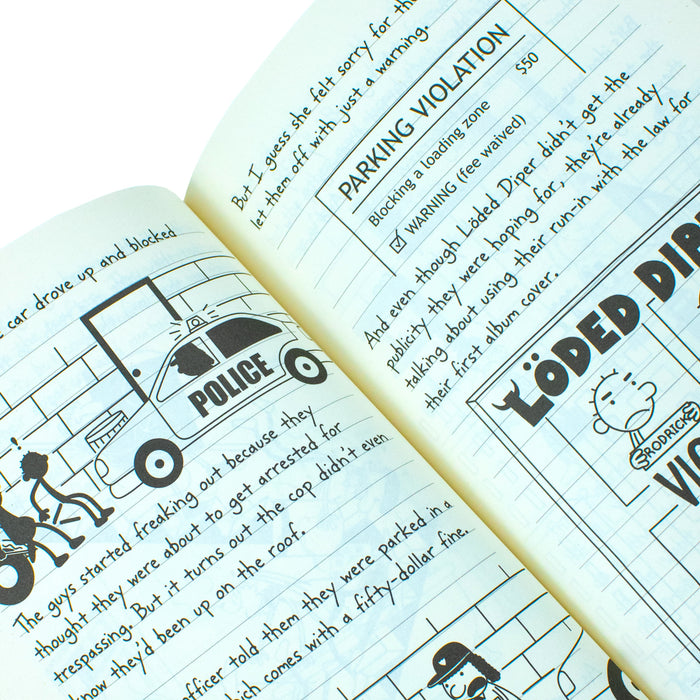 car drove up and blocked
POLICE
!
The guys started freaking out because they
thought they were about to get arrested for
trespassing. But it turns out the cop didn't even
know they'd been up on the roof.
officer told them they were parked in a
which comes with a fifty-dollar fine.
But I guess she felt sorry for
let them off with just a warning.
PARKING VIOLATION
Blocking a loading zone $50
☑ WARNING (fee waived)
And even though Löded Diper didn't get the
publicity they were hoping for, they're already
talking about using their run-in with the law for
their first album cover.
LÖDED
RODRICK